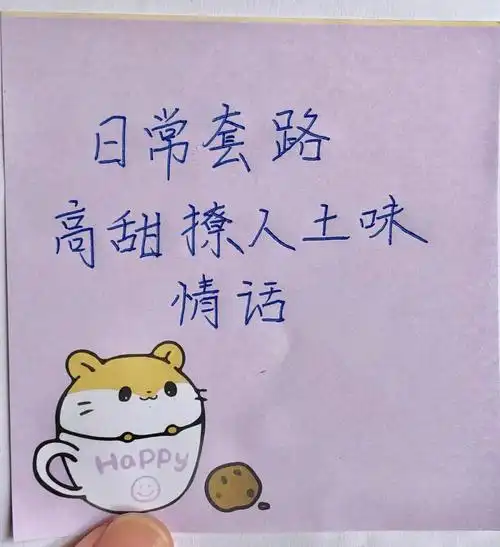 日常套路
高甜撩人土味
情话
Happy